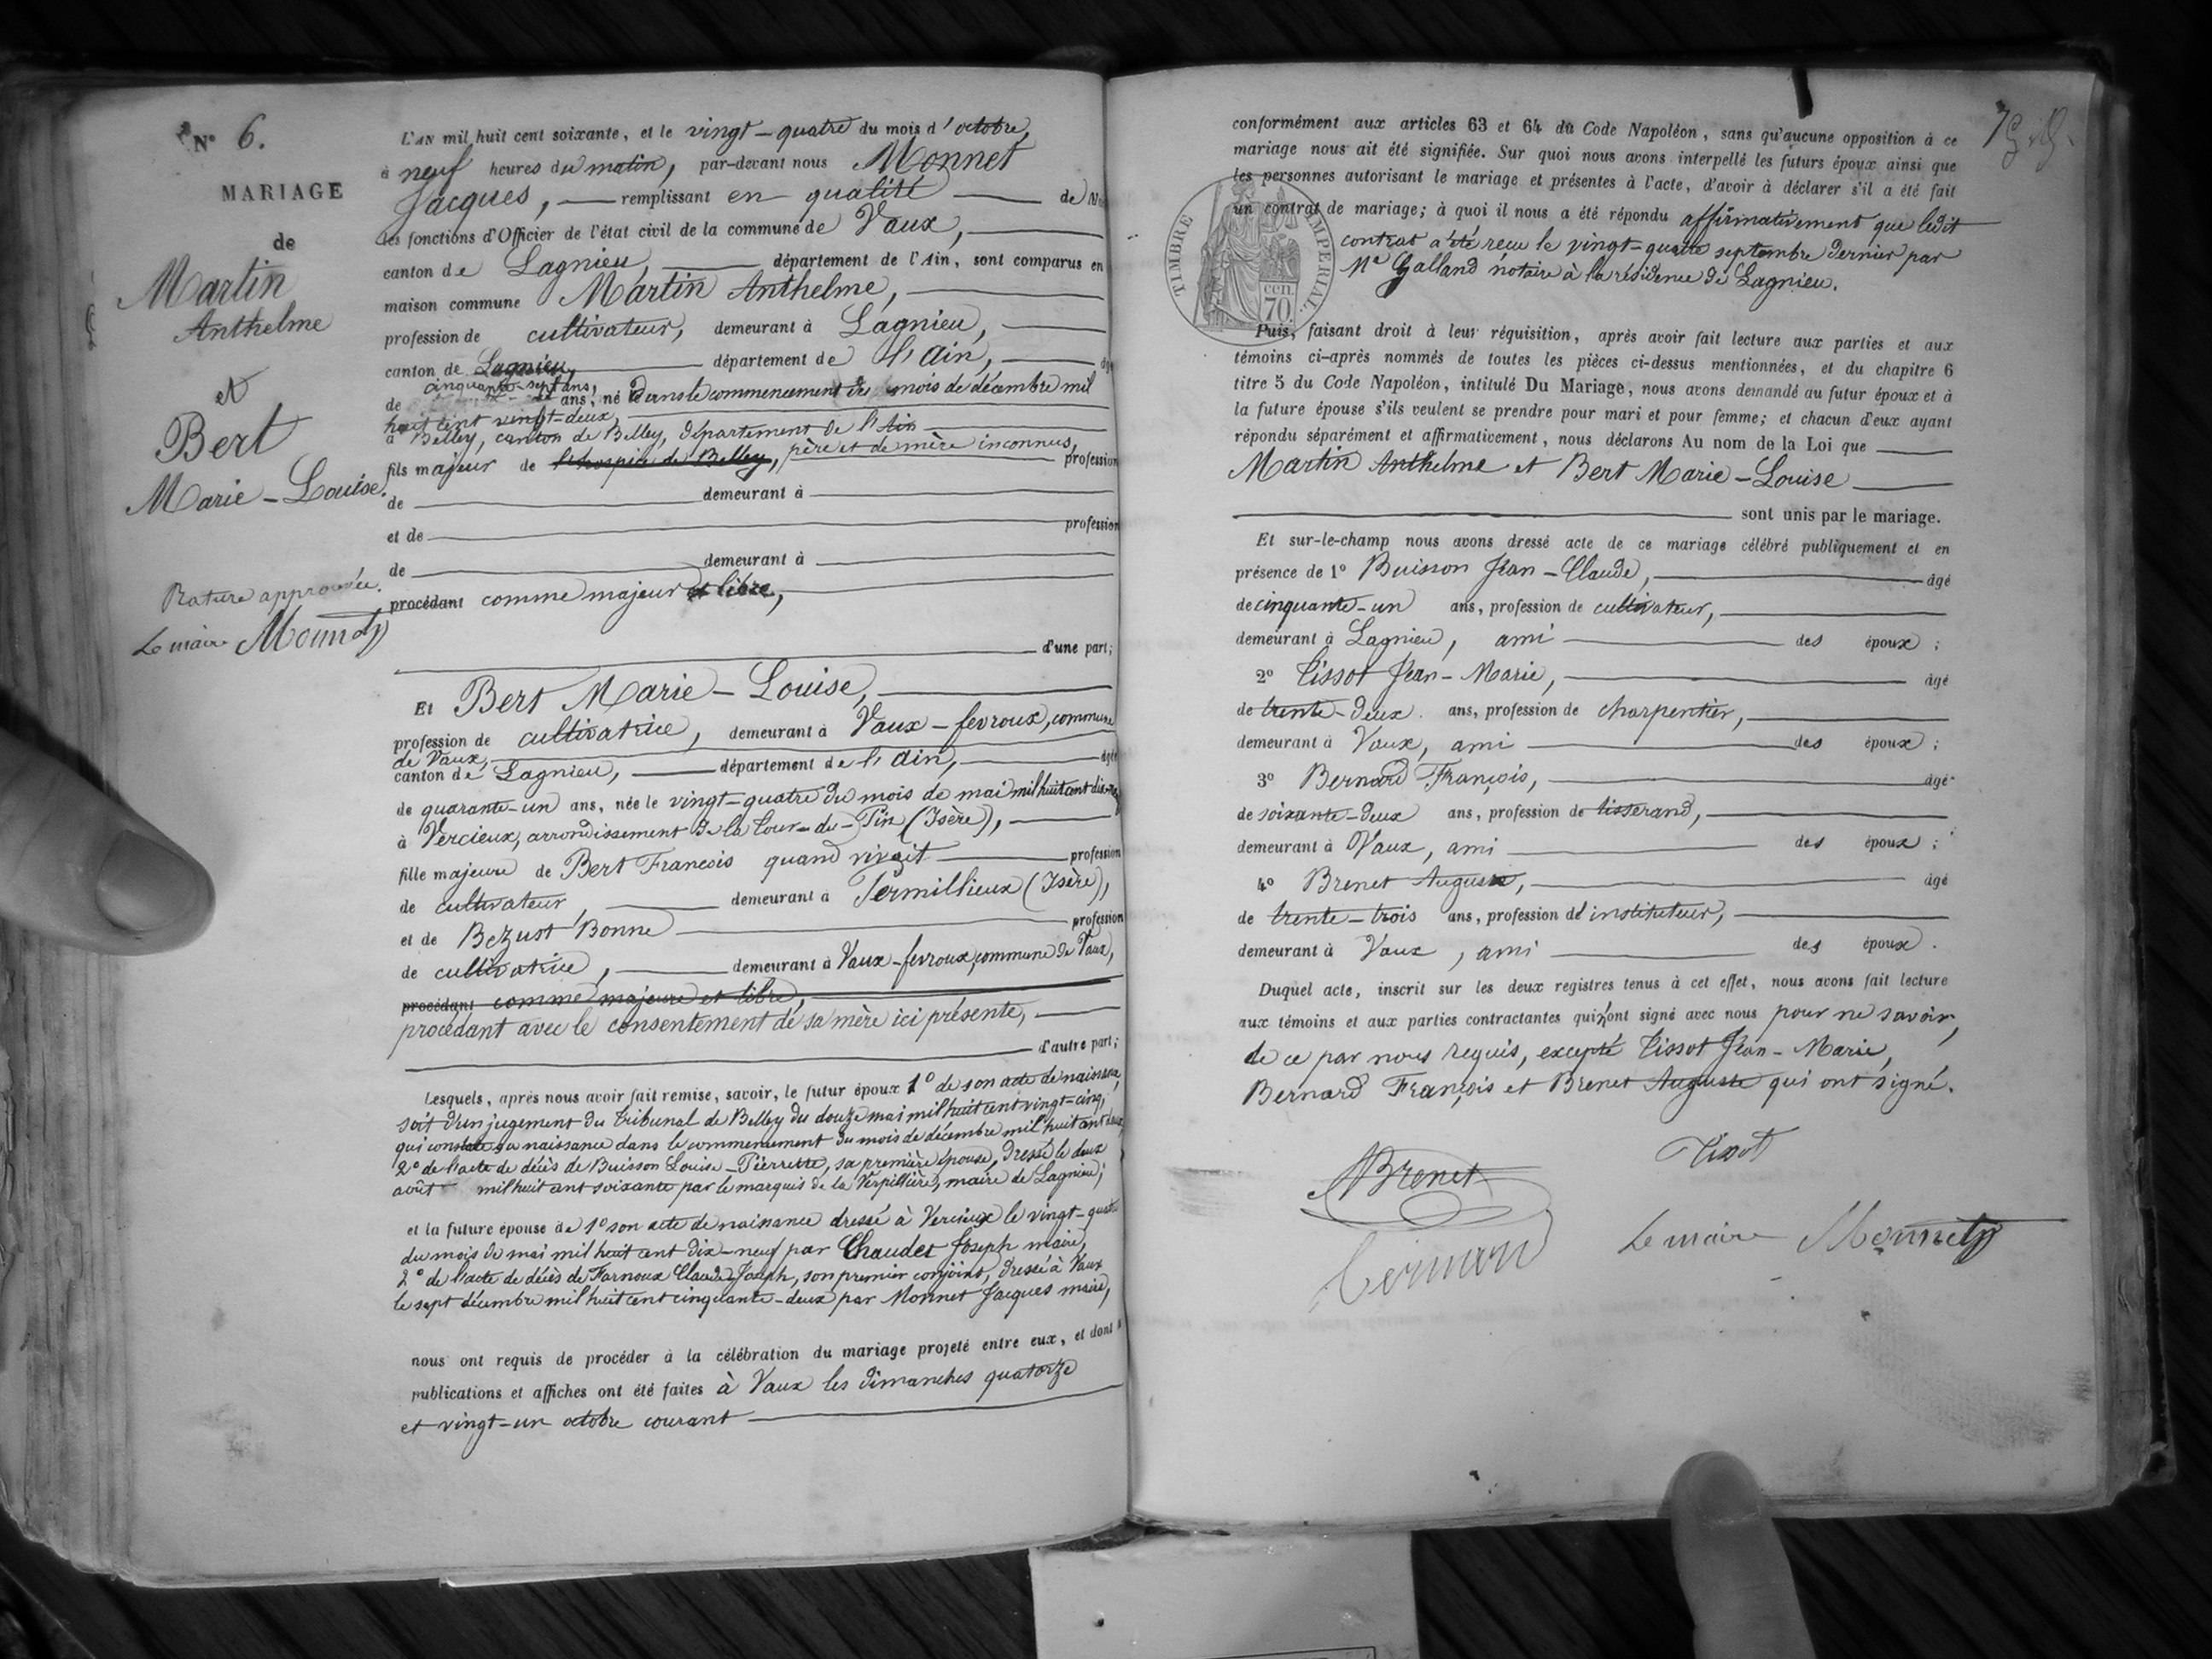 N° 6.
MARIAGE
de
Martin
Anthelme
et
Bert
Marie-Louise.
Rature approuvée.
Le maire Monnet
L'AN mil huit cent soixante, et le vingt-quatre du mois d'octobre,
à neuf heures du matin, par-devant nous Monnet
Jacques, remplissant en qualité de
les fonctions d'Officier de l'état civil de la commune de Vaux,
canton de Lagnieu, département de l'Ain, sont comparus en
maison commune Martin Anthelme,
profession de cultivateur, demeurant à Lagnieu,
canton de Lagnieu, département de l'Ain, âgé
cinquante-sept ans,
de ans, né dans le commencement du mois de décembre mil
huit cent vingt-deux,
à Belley, canton de Belley, département de l'Ain
fils majeur de l'hospice de Belley, père et de mère inconnus, profession
de demeurant à
et de profession
de demeurant à
procédant comme majeur et libre,
d'une part;
Et Bert Marie-Louise,
profession de cultivatrice, demeurant à Vaux-fevroux, commune
de Vaux,
canton de Lagnieu, département de l'Ain, âgée
de quarante-un ans, née le vingt-quatre du mois de mai mil huit cent dix-neuf
à Vercieux, arrondissement de la Tour-du-Pin (Isère),
fille majeure de Bert François quand vivait profession
de cultivateur, demeurant à Sermillieux (Isère),
et de Bezust Bonne profession
de cultivatrice, demeurant à Vaux-fevroux, commune de Vaux,
procédant comme majeure et libre,
procédant avec le consentement de sa mère ici présente,
d'autre part;
Lesquels, après nous avoir fait remise, savoir, le futur époux 1° de son acte de naissance,
soit d'un jugement du tribunal de Belley du douze mai mil huit cent vingt-cinq,
qui constate sa naissance dans le commencement du mois de décembre mil huit cent deux,
2° de l'acte de décès de Buisson Louise-Pierrette, sa première épouse, dressé le deux
août mil huit cent soixante par le marquis de la Verpillière, maire de Lagnieu;
et la future épouse de 1° son acte de naissance dressé à Vercieux le vingt-quatre
du mois de mai mil huit cent dix-neuf par Chaudet Joseph maire,
2° de l'acte de décès de Farnoux Claude Joseph, son premier conjoint, dressé à Vaux
le sept décembre mil huit cent cinquante-deux par Monnet Jacques maire,
nous ont requis de procéder à la célébration du mariage projeté entre eux, et dont
publications et affiches ont été faites à Vaux les dimanches quatorze
et vingt-un octobre courant
conformément aux articles 63 et 64 du Code Napoléon, sans qu'aucune opposition à ce
mariage nous ait été signifiée. Sur quoi nous avons interpellé les futurs époux ainsi que
les personnes autorisant le mariage et présentes à l'acte, d'avoir à déclarer s'il a été fait
un contrat de mariage; à quoi il nous a été répondu affirmativement que ledit
contrat a été reçu le vingt-quatre septembre dernier par
Me Galland notaire à la résidence de Lagnieu.
TIMBRE IMPERIAL
70 cen.
Puis, faisant droit à leur réquisition, après avoir fait lecture aux parties et aux
témoins ci-après nommés de toutes les pièces ci-dessus mentionnées, et du chapitre 6
titre 5 du Code Napoléon, intitulé Du Mariage, nous avons demandé au futur époux et à
la future épouse s'ils veulent se prendre pour mari et pour femme; et chacun d'eux ayant
répondu séparément et affirmativement, nous déclarons Au nom de la Loi que
Martin Anthelme et Bert Marie-Louise
sont unis par le mariage.
Et sur-le-champ nous avons dressé acte de ce mariage célébré publiquement et en
présence de 1° Buisson Jean-Claude, âgé
de cinquante-un ans, profession de cultivateur,
demeurant à Lagnieu, ami des époux;
2° Tissot Jean-Marie, âgé
de trente-deux ans, profession de charpentier,
demeurant à Vaux, ami des époux;
3° Bernard François, âgé
de soixante-deux ans, profession de tisserand,
demeurant à Vaux, ami des époux;
4° Brenet Auguste, âgé
de trente-trois ans, profession d'instituteur,
demeurant à Vaux, ami des époux.
Duquel acte, inscrit sur les deux registres tenus à cet effet, nous avons fait lecture
aux témoins et aux parties contractantes qui n'ont signé avec nous pour ne savoir,
de ce par nous requis, excepté Tissot Jean-Marie,
Bernard François et Brenet Auguste qui ont signé.
ABrenet
Tissot
Le maire Monnet